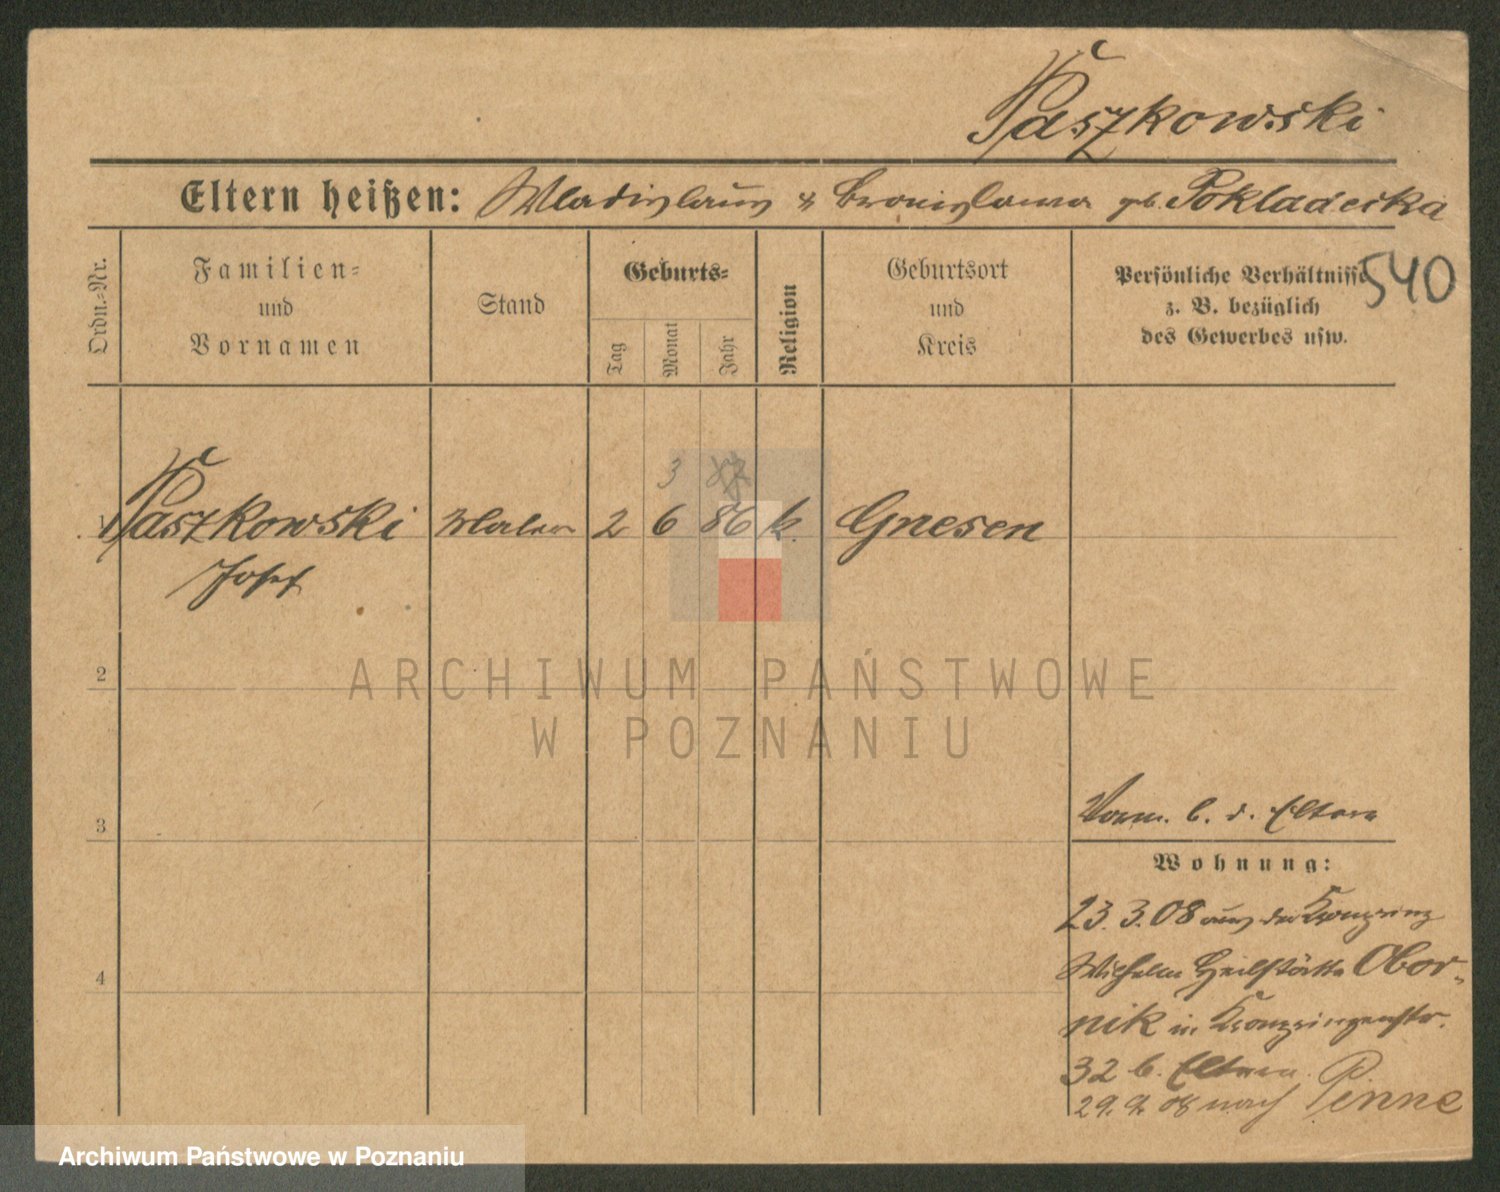 Paszkowski
Eltern heißen: Wladislaus & Bronislawa gb. Pokladecka
Ordn.-Nr.
Familien-
und
Vornamen
Stand
Geburts-
Tag
Monat
Jahr
Religion
Geburtsort
und
Kreis
Persönliche Verhältnisse
z. B. bezüglich
des Gewerbes usw.
540
3 87
1 Paszkowski Maler 2 6 86 k. Gnesen
Josef
2
ARCHIWUM PAŃSTWOWE
W POZNANIU
3
Vorm. b. d. Eltern
Wohnung:
23.3.08 aus der Kronprinz
Wilhelm Heilstätte Obor-
4
nik in Kronprinzenstr.
32 b. Eltern.
29.9.08 nach Pinne
Archiwum Państwowe w Poznaniu